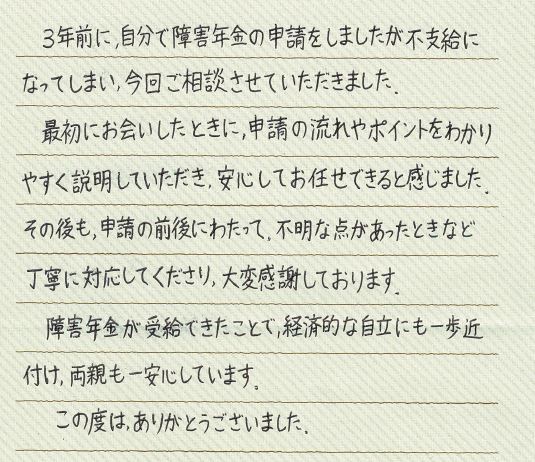 3年前に,自分で障害年金の申請をしましたが不支給に
なってしまい,今回ご相談させていただきました.
最初にお会いしたときに,申請の流れやポイントをわかり
やすく説明していただき,安心してお任せできると感じました.
その後も,申請の前後にわたって,不明な点があったときなど
丁寧に対応してくださり,大変感謝しております.
障害年金が受給できたことで,経済的な自立にも一歩近
付け,両親も一安心しています。
この度は,ありがとうございました.